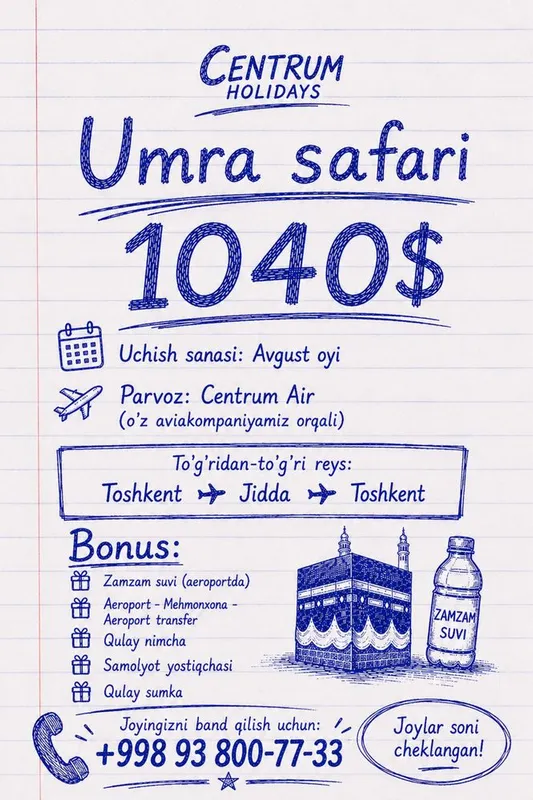 CENTRUM
HOLIDAYS
Umra safari
1040$
Uchish sanasi: Avgust oyi
Parvoz: Centrum Air
(o'z aviakompaniyamiz orqali)
To'g'ridan-to'g'ri reys:
Toshkent Jidda Toshkent
Bonus:
Zamzam suvi (aeroportda)
Aeroport - Mehmonxona -
Aeroport transfer
Qulay nimcha
Samolyot yostiqchasi
Qulay sumka
ZAMZAM
SUVI
Joyingizni band qilish uchun:
+998 93 800-77-33
Joylar soni
cheklangan!